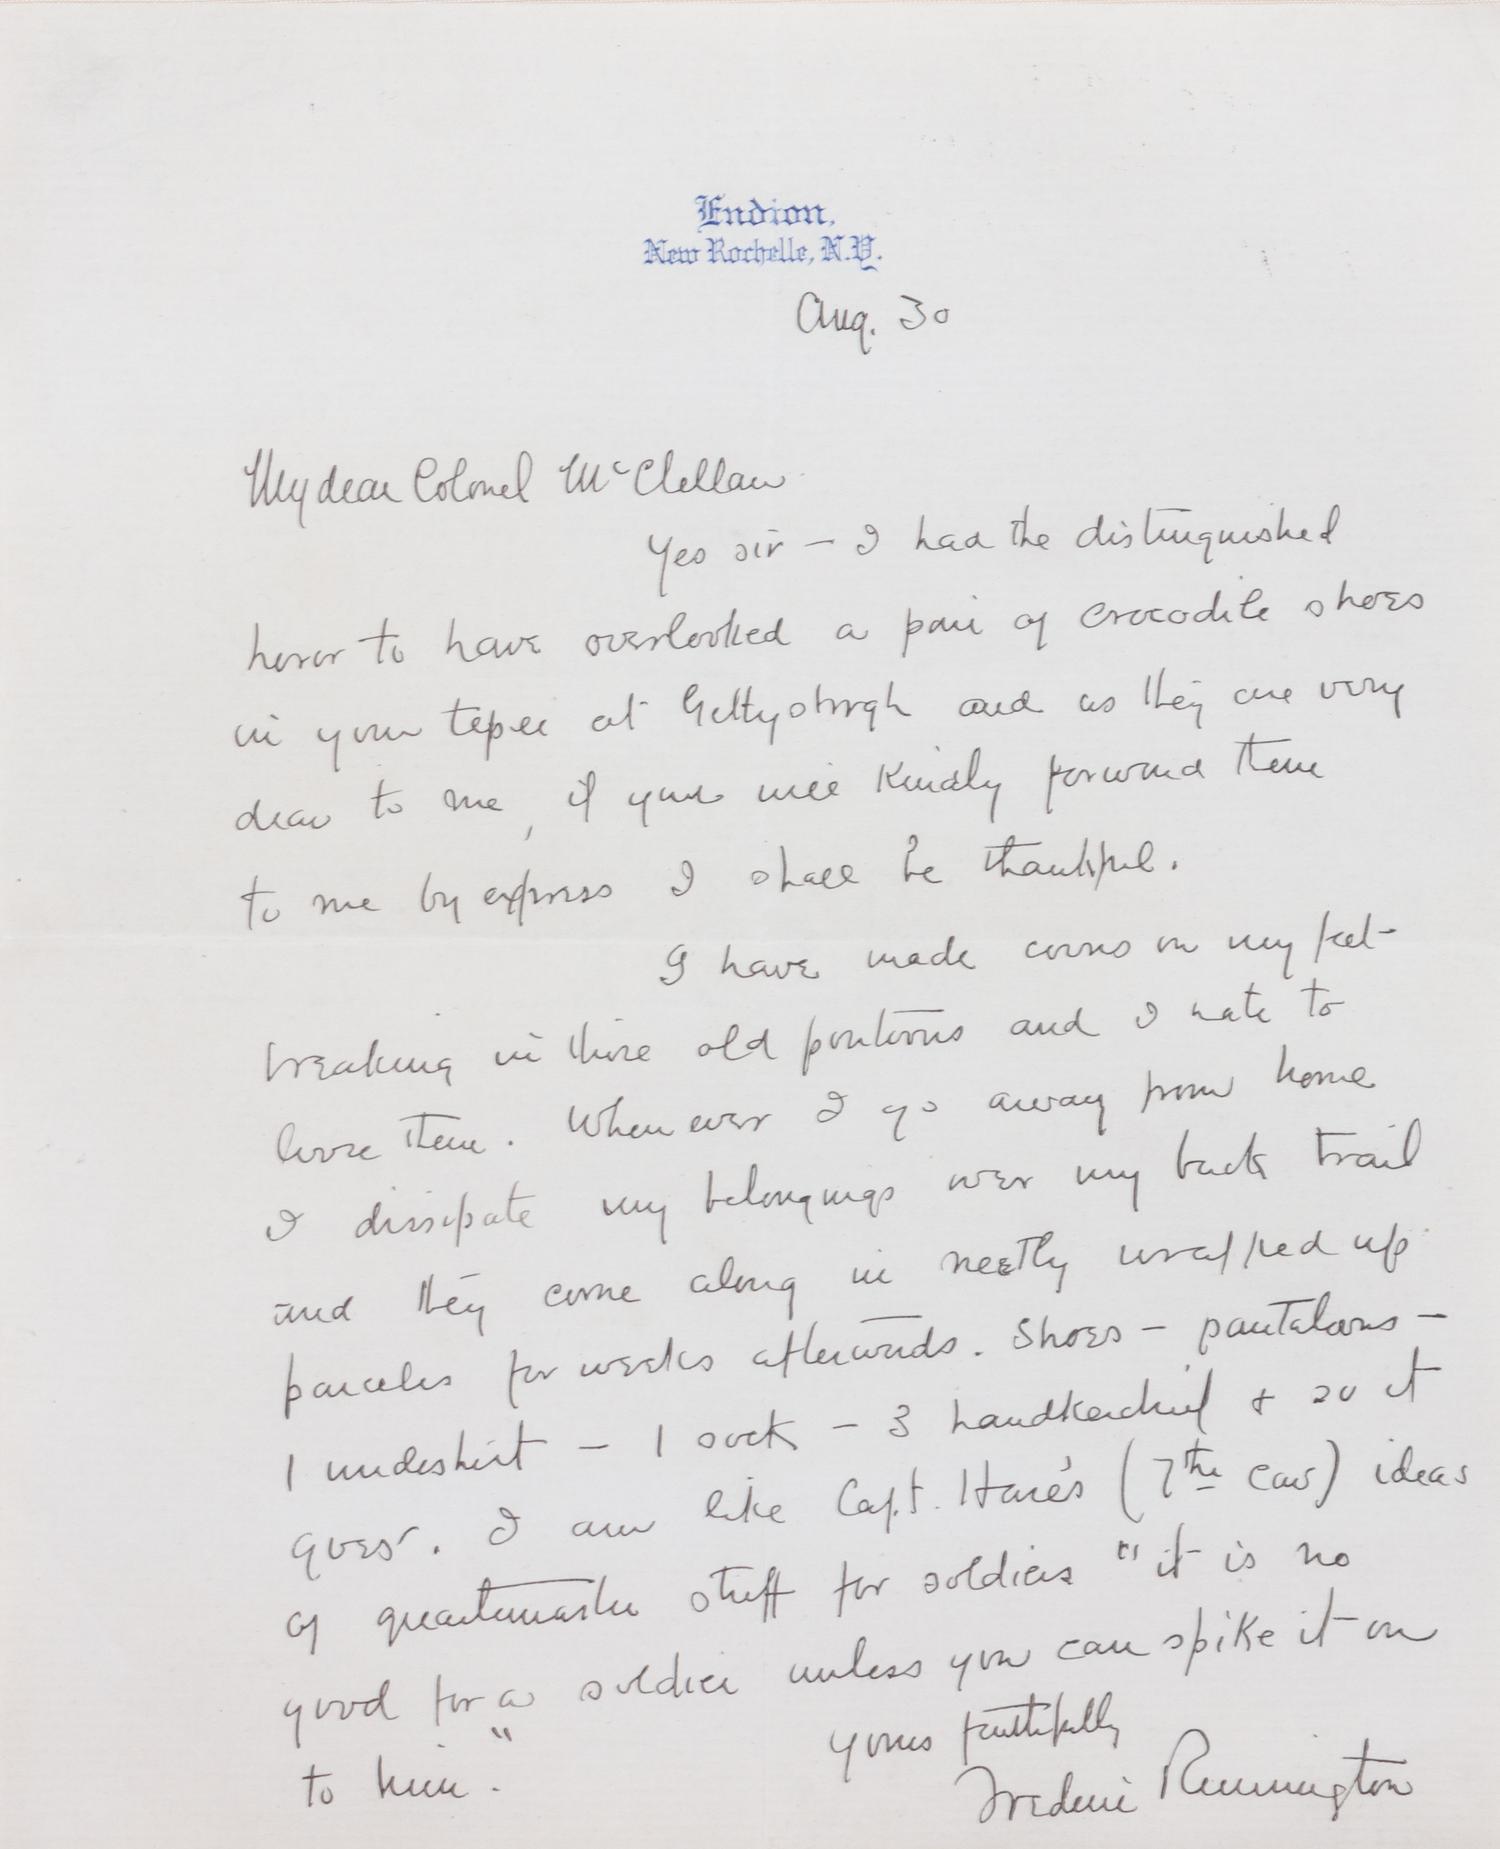 Endion,
New Rochelle, N.Y.
Aug. 30
My dear Colonel McClellan
Yes sir – I had the distinguished
honor to have overlooked a pair of crocodile shoes
in your tepee at Gettysburgh and as they are very
dear to me, if you will kindly forward them
to me by express I shall be thankful.
I have made corns on my feet
breaking in those old pontoons and I hate to
loose them. Whenever I go away from home
I dissipate my belongings over my back trail
and they come along in neetly wrapped up
parcels for weeks afterwards. Shoes – pantaloons –
1 undeshirt – 1 sock – 3 handkerchief & so it
goes. I am like Capt. Hare's (7th cav) ideas
of quartermaster stuff for soldiers "it is no
good for a soldier unless you can spike it on
to him."
Yours faithfully
Frederic Remmington